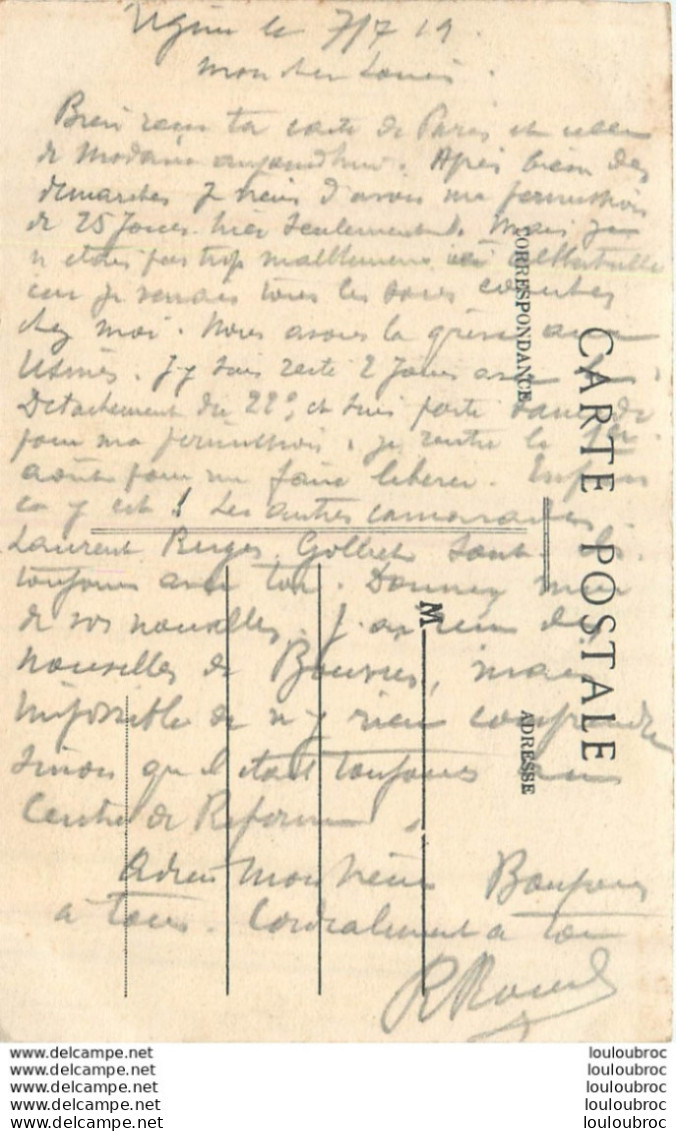 Ugine le 7/7 19.
Mon cher Louis.
Bien reçu ta carte de Paris et celle
de Modane aujourdhui. Après bien des
demarches je viens d'avoir ma permission
de 25 Jours hier seulement. Mais je
n etais pas trop malheureux
car je venais tous les soirs coucher
chez moi. Nous avons la grève aux
Usines. J'y suis resté 2 Jours avec
Detachement du 22e, et suis parti
pour ma permission, je rentre le 1er
août pour me faire liberer. Enfin
ca y est ! Les autres camarades
Laurent Ruges, Golliet sont-ils
toujours avec toi. Donnez moi
de vos nouvelles. J ai reçu des
nouvelles de Bouvier, mais
impossible de n y rien comprendre
sinon qu il etait toujours au
Centre de Reforme.
Adieu Mon vieux Bonjour
à tous. Cordialement a toi
R
CARTE POSTALE
CORRESPONDANCE
ADRESSE
M
www.delcampe.net
www.delcampe.net
www.delcampe.net
www.delcampe.net
www.delcampe.net
louloubroc
louloubroc
louloubroc
louloubroc
louloubroc